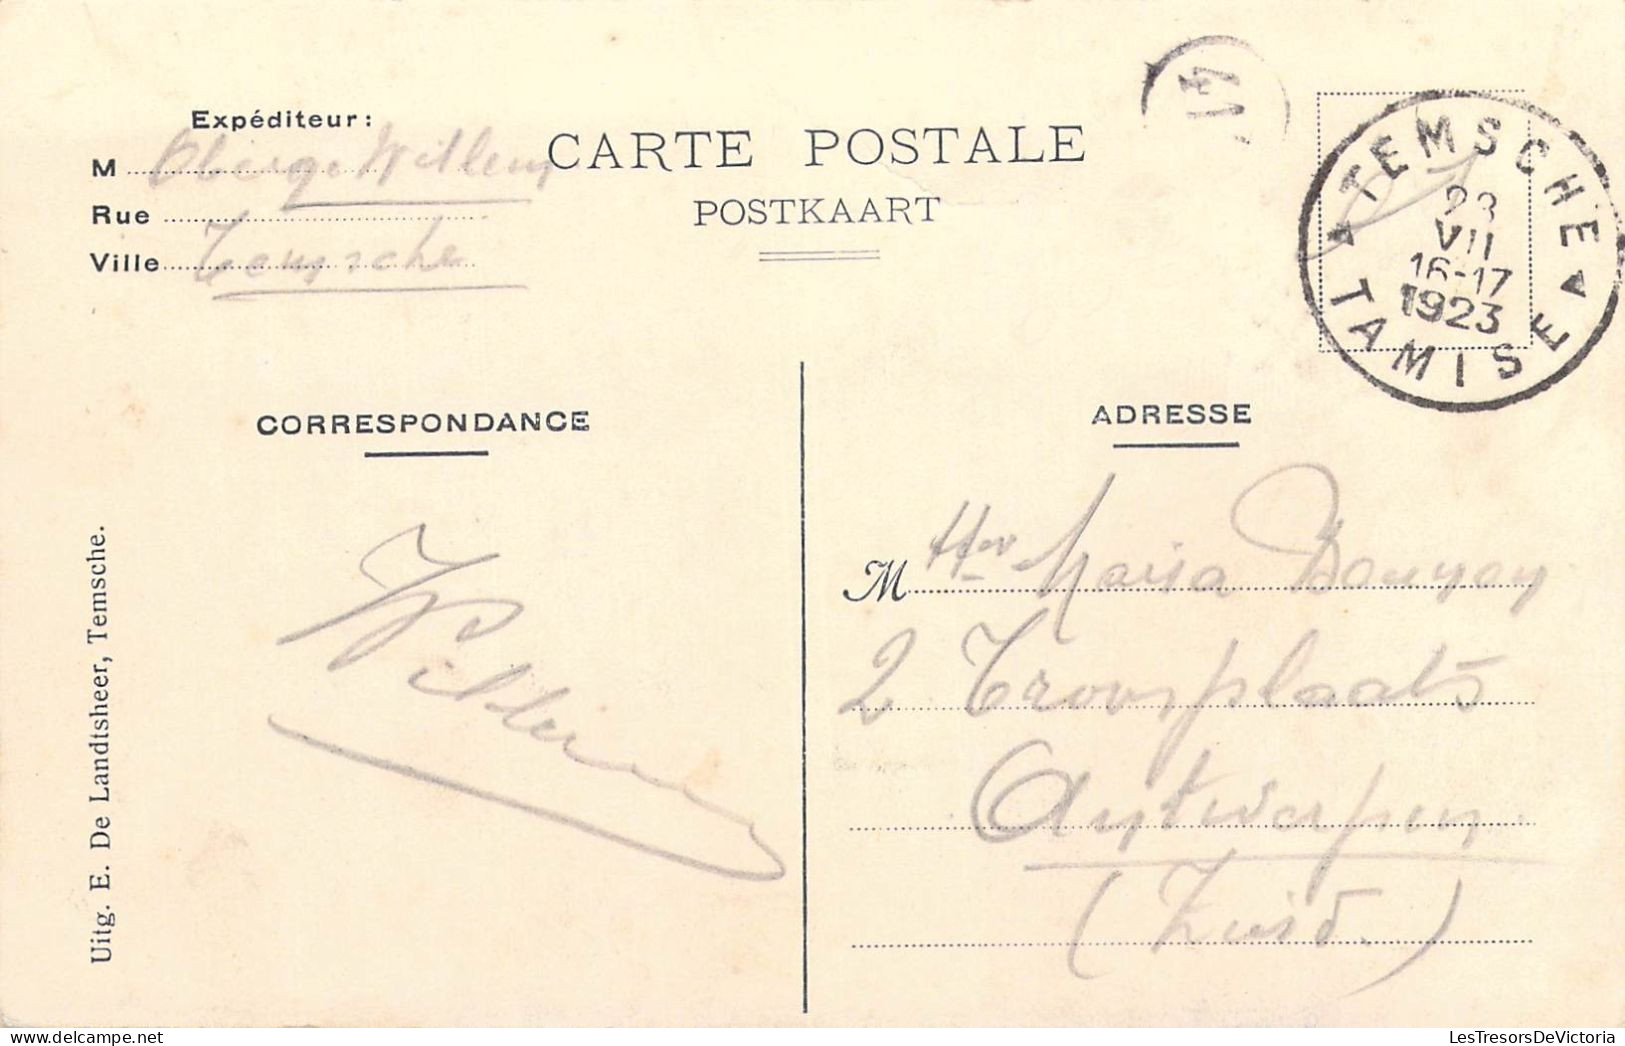 Expéditeur:
M Willem
Rue
Ville Temsche
CARTE POSTALE
POSTKAART
TEMSCHE
VII
16-17
1923
TAMISE
CORRESPONDANCE
Willem
Uitg. E. De Landtsheer, Temsche.
ADRESSE
M Maria
2 Troonplaats
Antwerpen.
(Zuid.)
LesTresorsDeVictoria